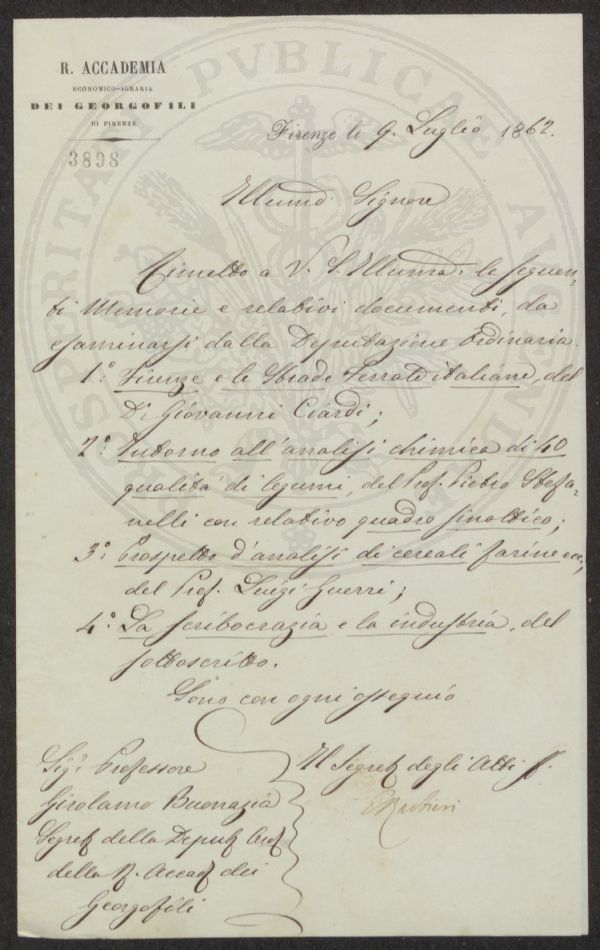 R. ACCADEMIA
ECONOMICO-AGRARIA
DEI GEORGOFILI
DI FIRENZE
3898
PROSPERITATI PVBLICAE AVGENDAE
Firenze li 9. Luglio 1862.
Illmo Signore
Rimetto a V. S. Illma. le seguen-
ti Memorie e relativi documenti, da
esaminarsi dalla Deputazione Ordinaria.
1º Firenze e le Strade Ferrate italiane, del
Dr. Giovanni Ciardi;
2º Intorno all'analisi chimica di 40
qualità di legumi, del Prof. Pietro Stefa-
nelli con relativo quadro sinottico;
3º Prospetto d'analisi di cereali farine ec,
del Prof. Luigi Guerri;
4º La scribocrazia e la industria, del
sottoscritto.
Sono con ogni ossequio
Il Segret. degli Atti
Sigr. Professore
Girolamo Buonazia
Segret. della Deput. Ord.
della R. Accad. dei
Georgofili